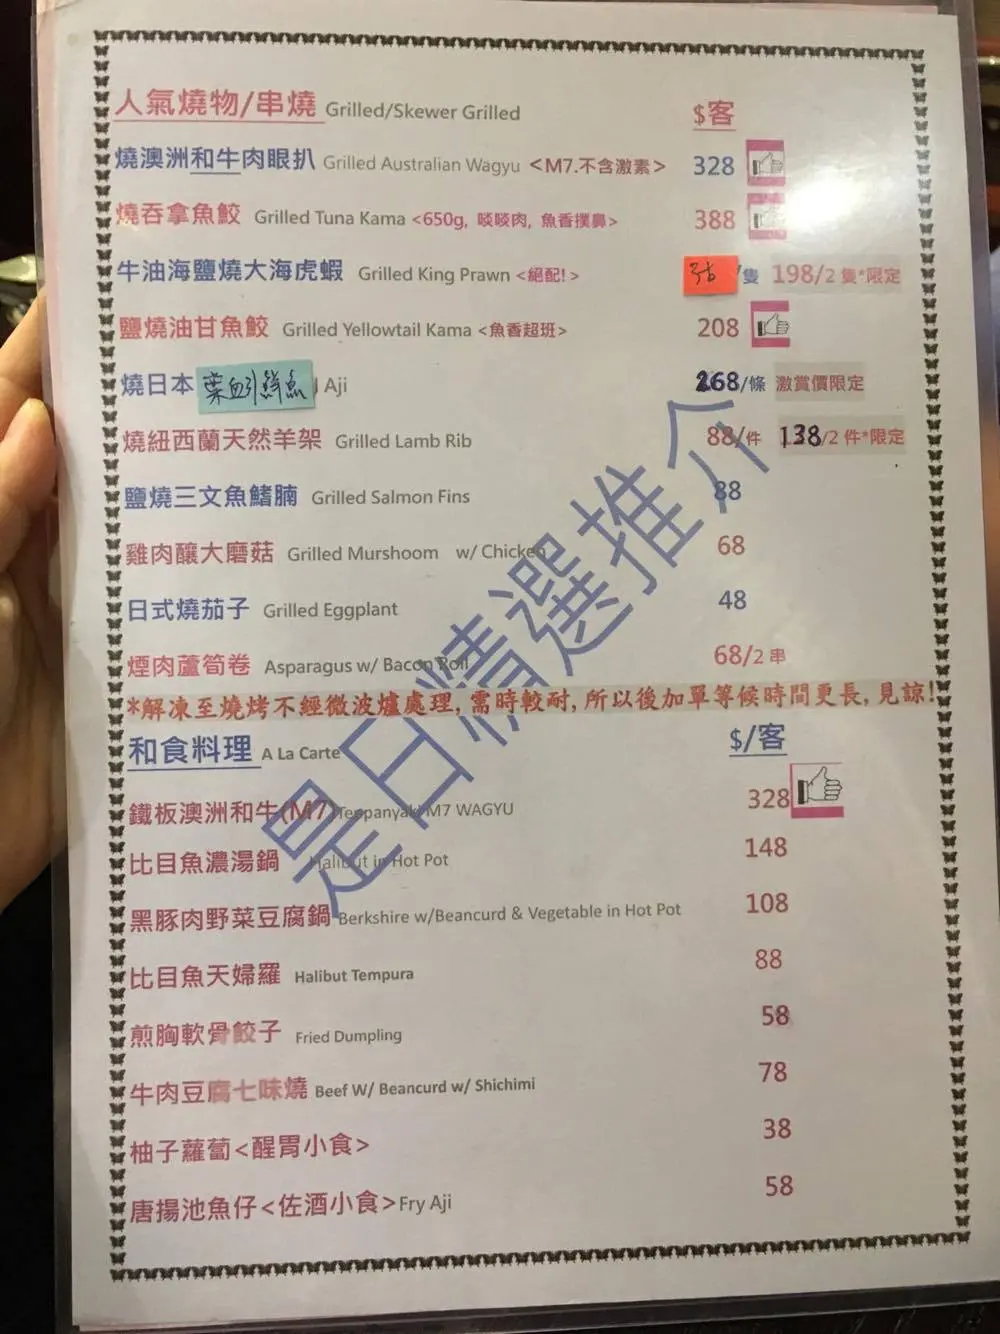 人氣燒物/串燒 Grilled/Skewer Grilled $客
燒澳洲和牛肉眼扒 Grilled Australian Wagyu <M7.不含激素> 328
燒吞拿魚鮫 Grilled Tuna Kama <650g, 啖啖肉, 魚香撲鼻> 388
牛油海鹽燒大海虎蝦 Grilled King Prawn <絕配!> /隻 198/2 隻*限定
鹽燒油甘魚鮫 Grilled Yellowtail Kama <魚香超班> 208
燒日本 鮮魚 Aji 268/條 激賞價限定
燒紐西蘭天然羊架 Grilled Lamb Rib 88/件 138/2 件*限定
鹽燒三文魚鰭腩 Grilled Salmon Fins 88
雞肉釀大磨菇 Grilled Murshoom w/ Chicken 68
日式燒茄子 Grilled Eggplant 48
煙肉蘆筍卷 Asparagus w/ Bacon Roll 68/2 串
*解凍至燒烤不經微波爐處理, 需時較耐, 所以後加單等候時間更長, 見諒!
和食料理 A La Carte $/客
鐵板澳洲和牛(M7) Teppanyaki M7 WAGYU 328
比目魚濃湯鍋 Halibut in Hot Pot 148
黑豚肉野菜豆腐鍋 Berkshire w/Beancurd & Vegetable in Hot Pot 108
比目魚天婦羅 Halibut Tempura 88
煎胸軟骨餃子 Fried Dumpling 58
牛肉豆腐七味燒 Beef W/ Beancurd w/ Shichimi 78
柚子蘿蔔<醒胃小食> 38
唐揚池魚仔<佐酒小食> Fry Aji 58
是日精選推介